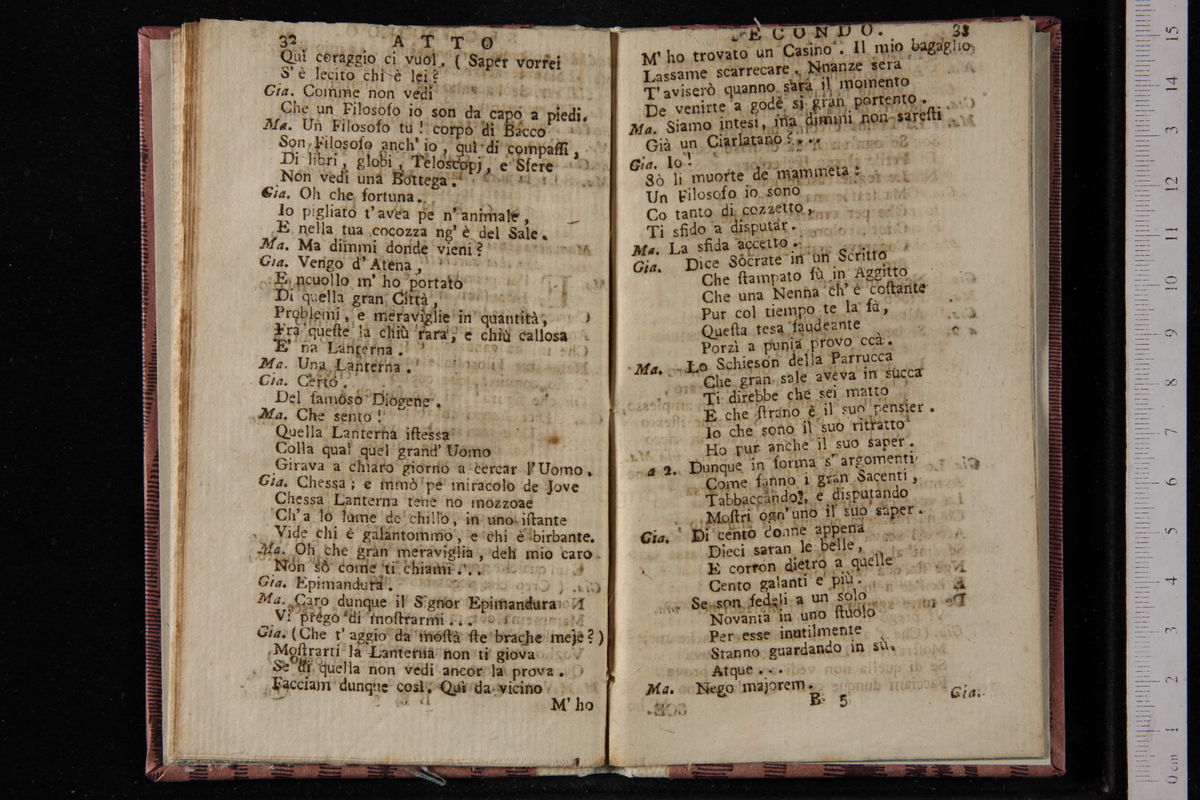 32 ATTO
Quì coraggio ci vuol. ( Saper vorrei
S'è lecito chi è lei?
Gia. Comme non vedi
Che un Filosofo io son da capo a piedi.
Ma. Un Filosofo tu! corpo di Bacco
Son Filosofo anch'io, quì di compaſſi,
Di libri, globi, Teloscopj, e Sfere
Non vedi una Bottega.
Gia. Oh che fortuna.
Io pigliato t'avea pe n'animale,
E nella tua cocozza ng'è del Sale.
Ma. Ma dimmi donde vieni?
Gia. Vengo d'Atena,
E ncuollo m'ho portato
Di quella gran Città,
Problemi, e meraviglie in quantità,
Fra queſte la chiù rara, e chiù callosa
E' na Lanterna.
Ma. Una Lanterna.
Gia. Certo.
Del famoso Diogene.
Ma. Che sento!
Quella Lanterna iſtessa
Colla qual quel grand'Uomo
Girava a chiaro giorno a cercar l'Uomo.
Gia. Chessa; e mmò pe miracolo de Jove
Chessa Lanterna tene no mozzoae
Ch'a lo lume de chillo, in uno iſtante
Vide chi è galantommo, e chi è birbante.
Ma. Oh che gran meraviglia, deh mio caro
Non sò come ti chiami...
Gia. Epimandura.
Ma. Caro dunque il Signor Epimandura
Vi prego di moſtrarmi...
Gia. (Che t'aggio da moſtà ſte brache meje?)
Moſtrarti la Lanterna non ti giova
Se di quella non vedi ancor la prova.
Facciam dunque così. Quì da vicino
M'ho
SECONDO. 33
M'ho trovato un Casino. Il mio bagaglio
Lassame scarrecare. Nnanze sera
T'aviserò quanno sarà il momento
De venirte a godè sì gran portento.
Ma. Siamo intesi, ma dimmi non sareſti
Già un Ciarlatano?...
Gia. Io!
Sò li muorte de mammeta:
Un Filosofo io sono
Co tanto di cozzetto,
Ti sfido a disputar.
Ma. La sfida accetto.
Gia. Dice Socrate in un Scritto
Che ſtampato fù in Aggitto
Che una Nenna ch'è coſtante
Pur col tiempo te la fà,
Queſta tesa faudeante
Porzì a punia provo ccà.
Ma. Lo Schieson della Parrucca
Che gran sale aveva in succa
Ti direbbe che sei matto
E che ſtrano è il suo pensier.
Io che sono il suo ritratto
Ho pur anche il suo saper.
a 2. Dunque in forma s'argomenti
Come fanno i gran Sacenti,
Tabbaccando, e disputando
Moſtri ogn'uno il suo saper.
Gia. Di cento donne appena
Dieci saran le belle,
E corron dietro a quelle
Cento galanti e più.
Se son fedeli a un solo
Novanta in uno ſtuolo
Per esse inutilmente
Stanno guardando in sù.
Atque...
Ma. Nego majorem.
B 5 Gia.
15
14
13
12
11
10
9
8
7
6
5
4
3
2
1
0 cm